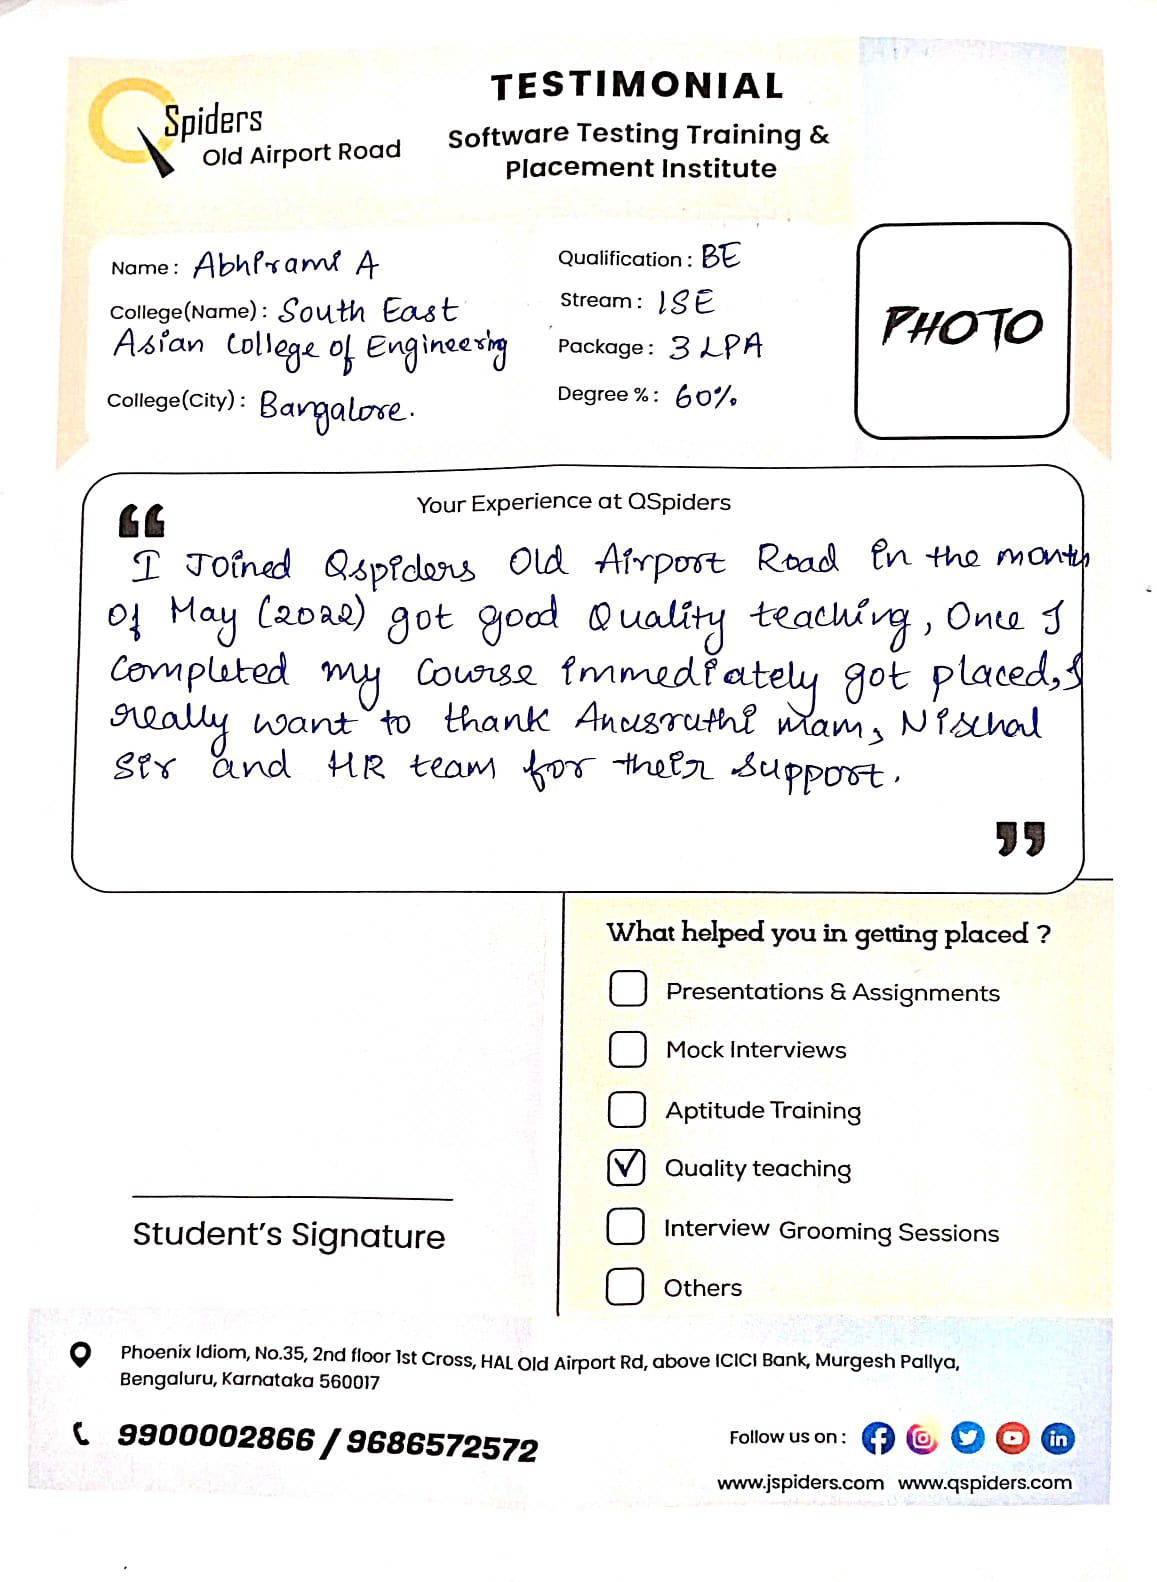 Spiders
Old Airport Road
TESTIMONIAL
Software Testing Training &
Placement Institute
Name : Abhirami A
College(Name) : South East
Asian College of Engineering
College(City) : Bangalore.
Qualification : BE
Stream : ISE
Package : 3 LPA
Degree % : 60%
PHOTO
Your Experience at QSpiders
I Joined Qspiders Old Airport Road in the month
Of May (2022) got good Quality teaching, Once I
Completed my Course immediately got placed, I
really want to thank Anusruthi mam, Nischal
Sir and HR team for their support.
What helped you in getting placed ?
Presentations & Assignments
Mock Interviews
Aptitude Training
Quality teaching
Interview Grooming Sessions
Others
Student's Signature
Phoenix Idiom, No.35, 2nd floor 1st Cross, HAL Old Airport Rd, above ICICI Bank, Murgesh Pallya,
Bengaluru, Karnataka 560017
9900002866 / 9686572572
Follow us on :
www.jspiders.com www.qspiders.com